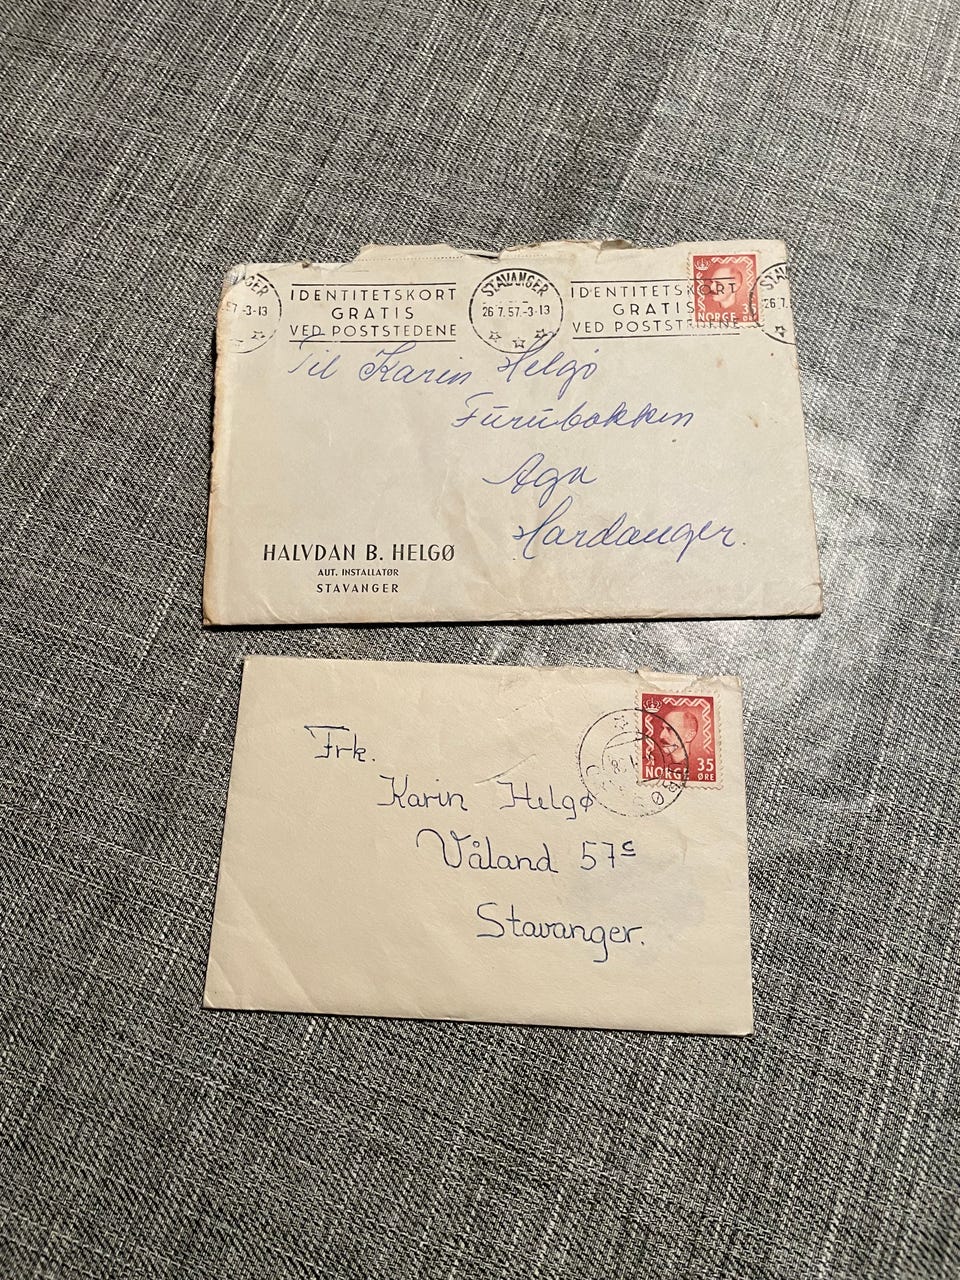 IDENTITETSKORT
GRATIS
VED POSTSTEDENE
STAVANGER
26 7.57.-3-13
IDENTITETSKORT
GRATIS
VED POSTSTEDENE
NORGE 35
ØRE
57.-3-13
26 7.
Til Karin Helgø
Furubakken
Aga
Hardanger.
HALVDAN B. HELGØ
AUT. INSTALLATØR
STAVANGER
NORGE 35
ØRE
Frk.
Karin Helgø
Våland 57c
Stavanger.